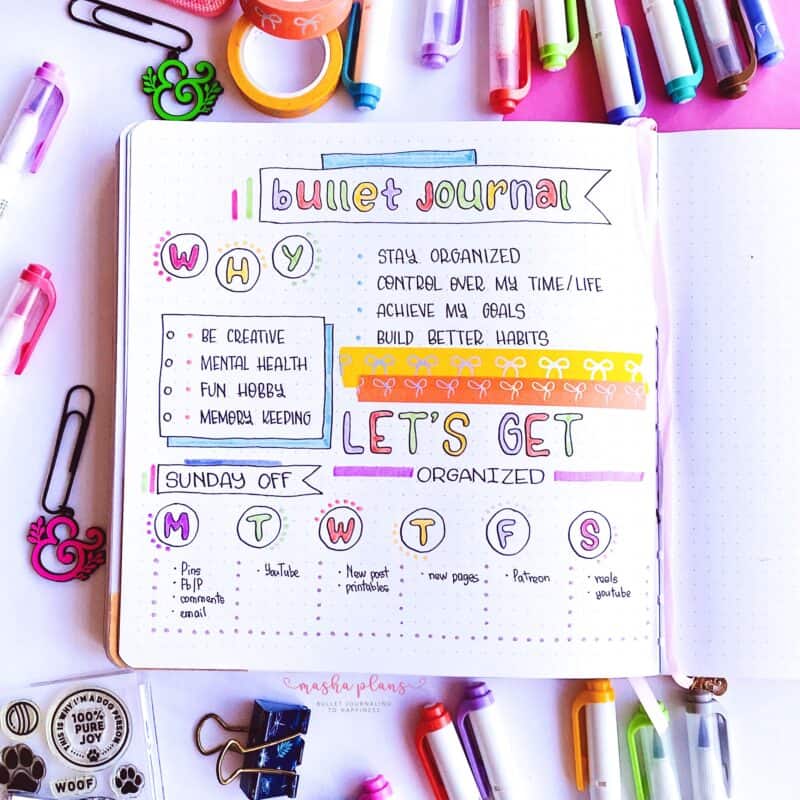 bullet journal
WHY
STAY ORGANIZED
CONTROL OVER MY TIME/LIFE
ACHIEVE MY GOALS
BUILD BETTER HABITS
BE CREATIVE
MENTAL HEALTH
FUN HOBBY
MEMORY KEEPING
LET'S GET
ORGANIZED
SUNDAY OFF
M T W T F S
Pins
Fb/P
comments
email
YouTube
New post
printables
new pages
Patreon
reels
youtube
masha plans
BULLET JOURNALING
TO HAPPINESS
THIS IS WHY I'M A DOG PERSON
100%
PURE
JOY
WOOF